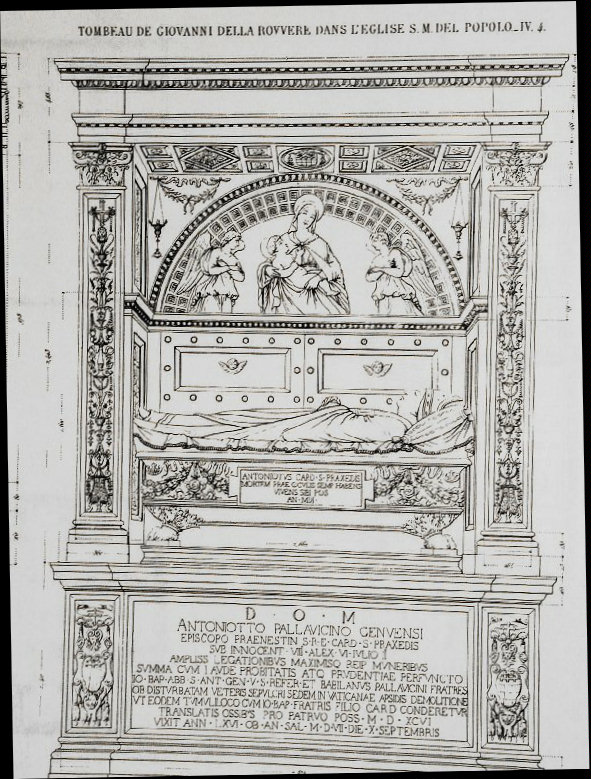 TOMBEAU DE GIOVANNI DELLA ROVVERE DANS L'EGLISE S. M. DEL POPOLO_IV. 4.
ANTONIOTVS CARD · S · PRAXEDIS
MORTEM PRAE OCVLIS SEMP HABENS
VIVENS SIBI POS
AN · MDI
D · O · M
ANTONIOTTO PALLAVICINO GENVENSI
EPISCOPO PRAENESTIN S · R · E · CARD · S · PRAXEDIS
SVB INNOCENT · VIII · ALEX · VI · IVLIO
AMPLISS LEGATIONIBVS MAXIMISQ REIP MVNERIBVS
SVMMA CVM LAVDE PROBITATIS ATQ PRVDENTIAE PERFVNCTO
IO · BAP · ABB · S · ANT · GEN · V · S · REFER · ET BABILANVS PALLAVICINI FRATRES
OB DISTVRBATAM VETERIS SEPVLCRI SEDEM IN VATICANAE APSIDIS DEMOLITIONE
VT EODEM TVMVLI LOCO CVM IO · BAP · FRATRIS FILIO CARD CONDERETVR
TRANSLATIS OSSIB'S PRO PATRVO POSS · M · D · XCVI
VIXIT ANN · LXVI · OB · AN · SAL · M · D · VII · DIE · X · SEPTEMBRIS